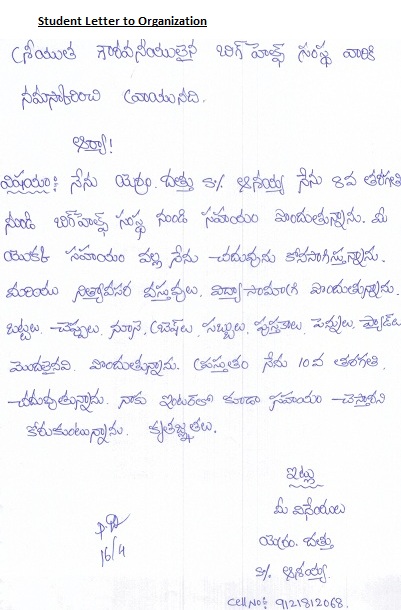 Student Letter to Organization
శ్రీయుత గౌరవనీయులైన బిగ్ హెల్ప్ సంస్థ వారికి
నమస్కరించి వ్రాయునది.
ఆర్యా!
విషయం: నేను యెర్రం. దత్తు S/o ఆశయ్య నేను 8వ తరగతి
నుండి బిగ్ హెల్ప్ సంస్థ నుండి సహాయం పొందుతున్నాను. మీ
యొక్క సహాయం వల్ల నేను చదువును కొనసాగిస్తున్నాను.
మరియు నిత్యావసర వస్తువులు, విద్యా సామాగ్రి పొందుతున్నాను.
బట్టలు, చెప్పులు, నూనె, బ్రెష్‌లు, సబ్బులు, పుస్తకాలు, పెన్నులు, ప్యాడ్‌లు
మొదలైనవి పొందుతున్నాను. ప్రస్తుతం నేను 10వ తరగతి
చదువుతున్నాను. నాకు ఇంటర్‌లో కూడా సహాయం చేస్తారని
కోరుకుంటున్నాను. కృతజ్ఞతలు.
ఇట్లు
మీ విధేయులు
యెర్రం. దత్తు
S/o. ఆశయ్య.
16/4
Cell No: 9121812068.